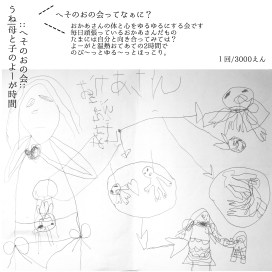 ::へそのおの会::
うね|母と子のよーが時間
へそのおの会ってなぁに？
おかあさんの体と心をゆるゆるにする会です
毎日頑張っているおかあさんだもの
たまには自分と向き合ってみては？
よーがと温熱おてあての2時間で
のび〜っとゆる〜っとほっこり。
1回/3000えん